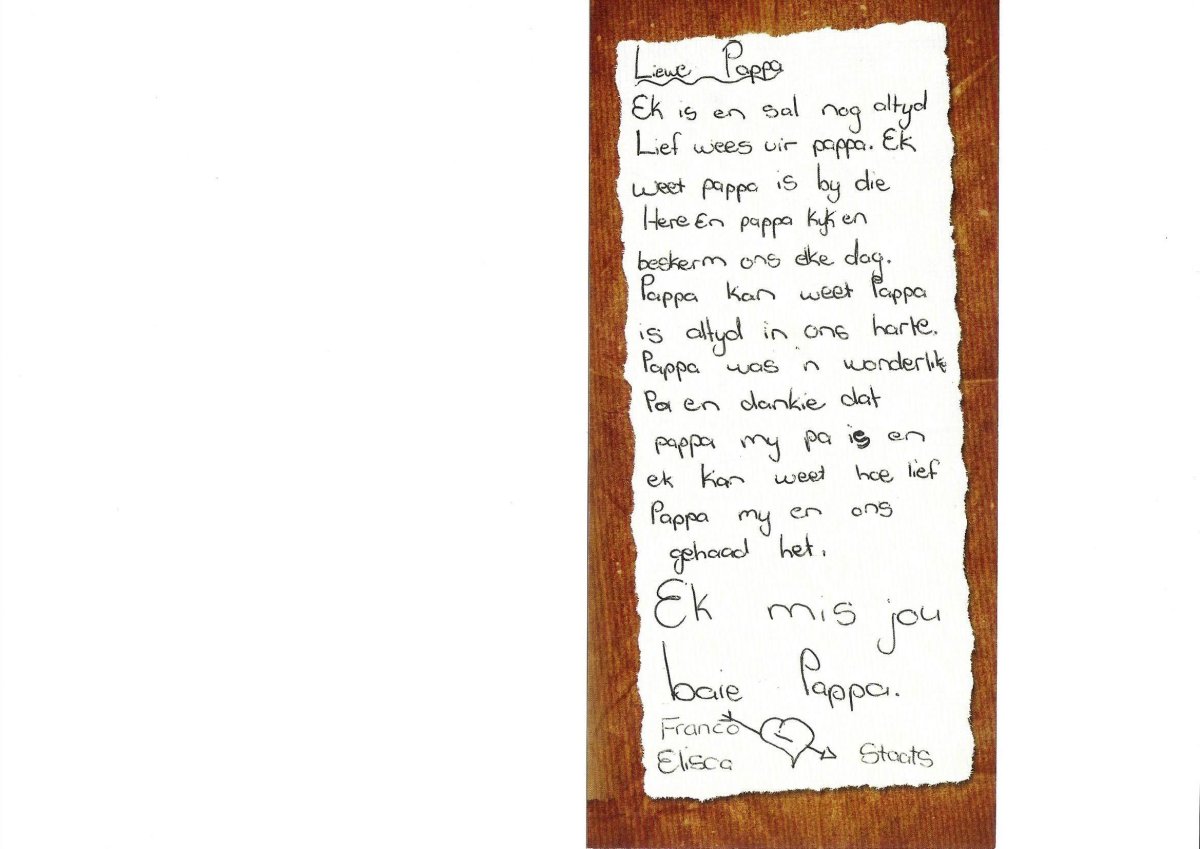 Liewe Pappa
Ek is en sal nog altyd
Lief wees vir pappa. Ek
weet pappa is by die
Here En pappa kyk en
beskerm ons elke dag.
Pappa kan weet Pappa
is altyd in ons harte.
Pappa was 'n wonderlike
Pa en dankie dat
pappa my pa is en
ek kan weet hoe lief
Pappa my en ons
gehaad het.
Ek mis jou
baie Pappa.
Franco
Elisca Staats